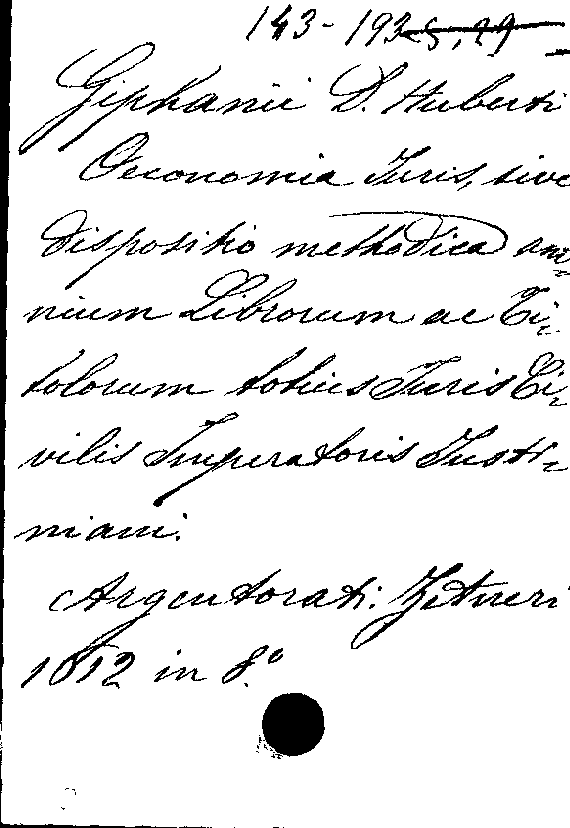 143-193 5,29
Giphanii D. Huberti
Oeconomia Iuris, sive
dispositio methodica om=
nium Librorum ac Ti=
tolorum totius Iuris Ci=
vilis Imperatoris Iusti=
niani.
Argentorati. Zetneri
1612 in 8.º